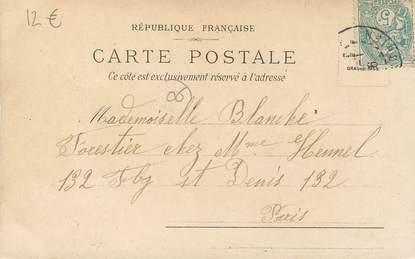 12 €
RÉPUBLIQUE FRANÇAISE
CARTE POSTALE
Ce côté est exclusivement réservé à l'adresse
06
Mademoiselle Blanche
Forestier chez Mme Hennel
132 Fbg St Denis 132
Paris